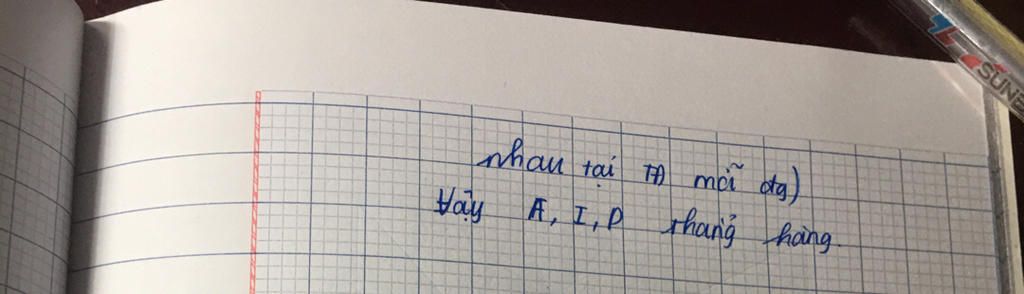 nhau tại TĐ mỗi đg)
Vậy A, I, D thẳng hàng.